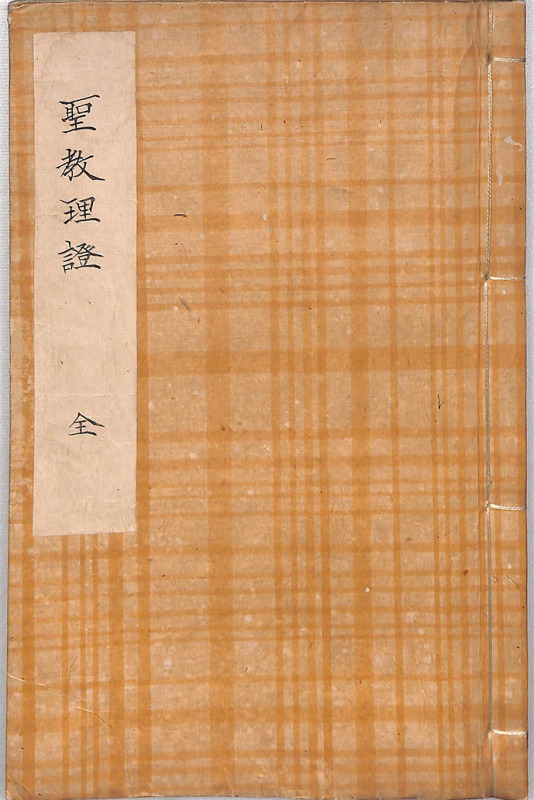 聖教理證
全